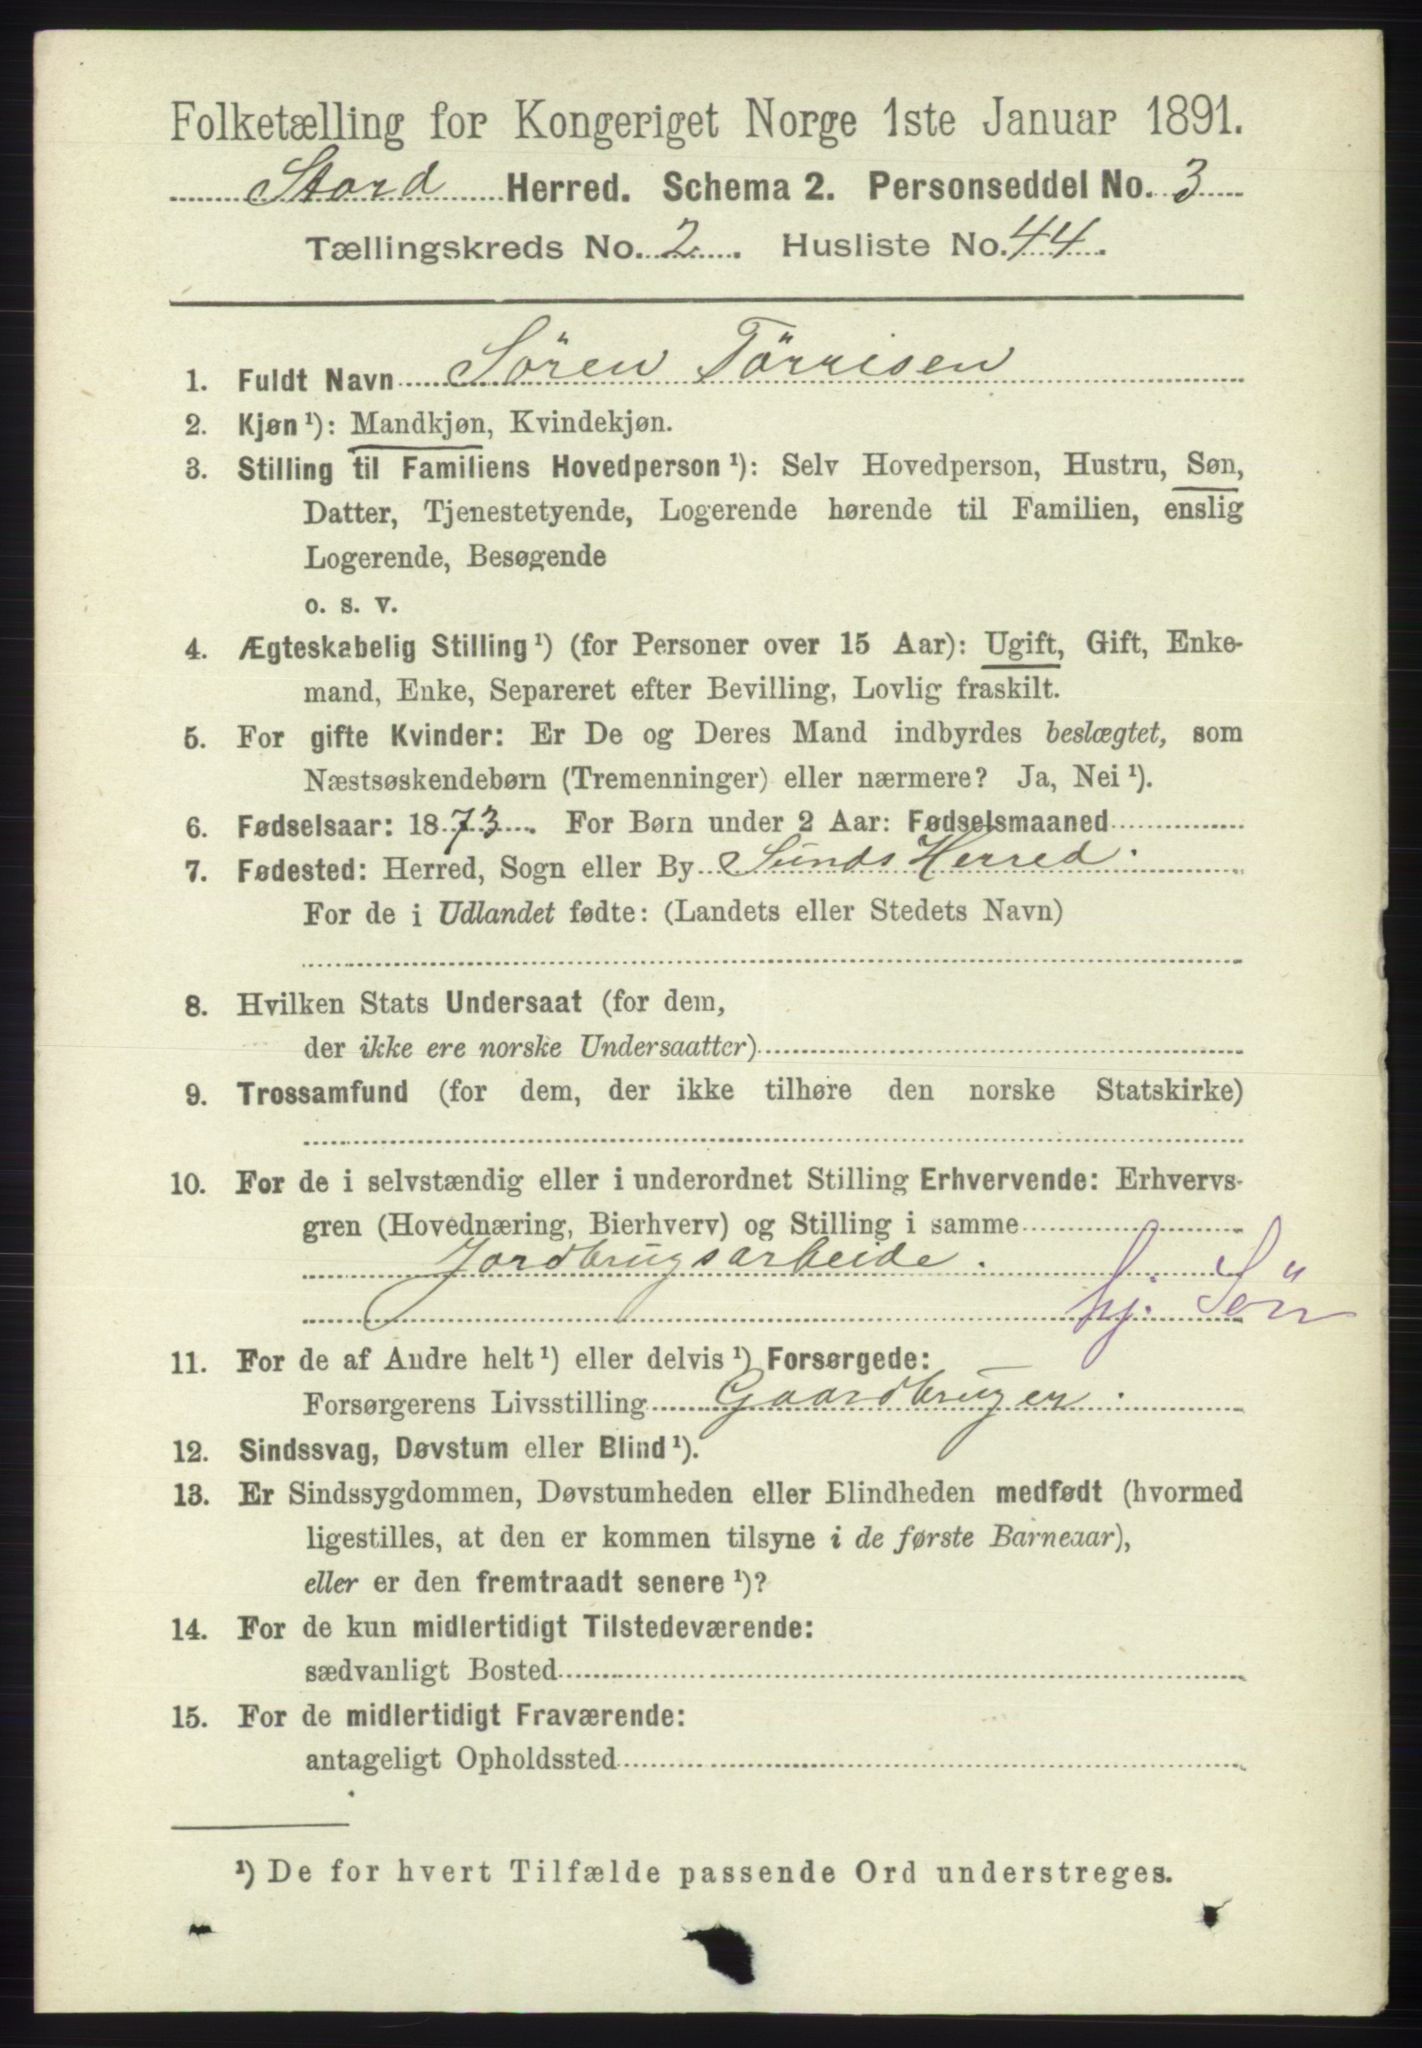 Folketælling for Kongeriget Norge 1ste Januar 1891.
Stord Herred. Schema 2. Personseddel No. 3
Tællingskreds No. 2. Husliste No. 44.
1. Fuldt Navn Sören Törrisen
2. Kjøn ¹): Mandkjøn, Kvindekjøn.
3. Stilling til Familiens Hovedperson ¹): Selv Hovedperson, Hustru, Søn,
Datter, Tjenestetyende, Logerende hørende til Familien, enslig
Logerende, Besøgende
o. s. v.
4. Ægteskabelig Stilling ¹) (for Personer over 15 Aar): Ugift, Gift, Enke-
mand, Enke, Separeret efter Bevilling, Lovlig fraskilt.
5. For gifte Kvinder: Er De og Deres Mand indbyrdes beslægtet, som
Næstsøskendebørn (Tremenninger) eller nærmere? Ja, Nei ¹).
6. Fødselsaar: 1873. For Børn under 2 Aar: Fødselsmaaned
7. Fødested: Herred, Sogn eller By Sunds Herred.
For de i Udlandet fødte: (Landets eller Stedets Navn)
8. Hvilken Stats Undersaat (for dem,
der ikke ere norske Undersaatter)
9. Trossamfund (for dem, der ikke tilhøre den norske Statskirke)
10. For de i selvstændig eller i underordnet Stilling Erhvervende: Erhvervs-
gren (Hovednæring, Bierhverv) og Stilling i samme
Jordbrugsarbeide.
hj. Sön
11. For de af Andre helt ¹) eller delvis ¹) Forsørgede:
Forsørgerens Livsstilling Gaardbruger.
12. Sindssvag, Døvstum eller Blind ¹).
13. Er Sindssygdommen, Døvstumheden eller Blindheden medfødt (hvormed
ligestilles, at den er kommen tilsyne i de første Barneaar),
eller er den fremtraadt senere ¹)?
14. For de kun midlertidigt Tilstedeværende:
sædvanligt Bosted
15. For de midlertidigt Fraværende:
antageligt Opholdssted
¹) De for hvert Tilfælde passende Ord understreges.